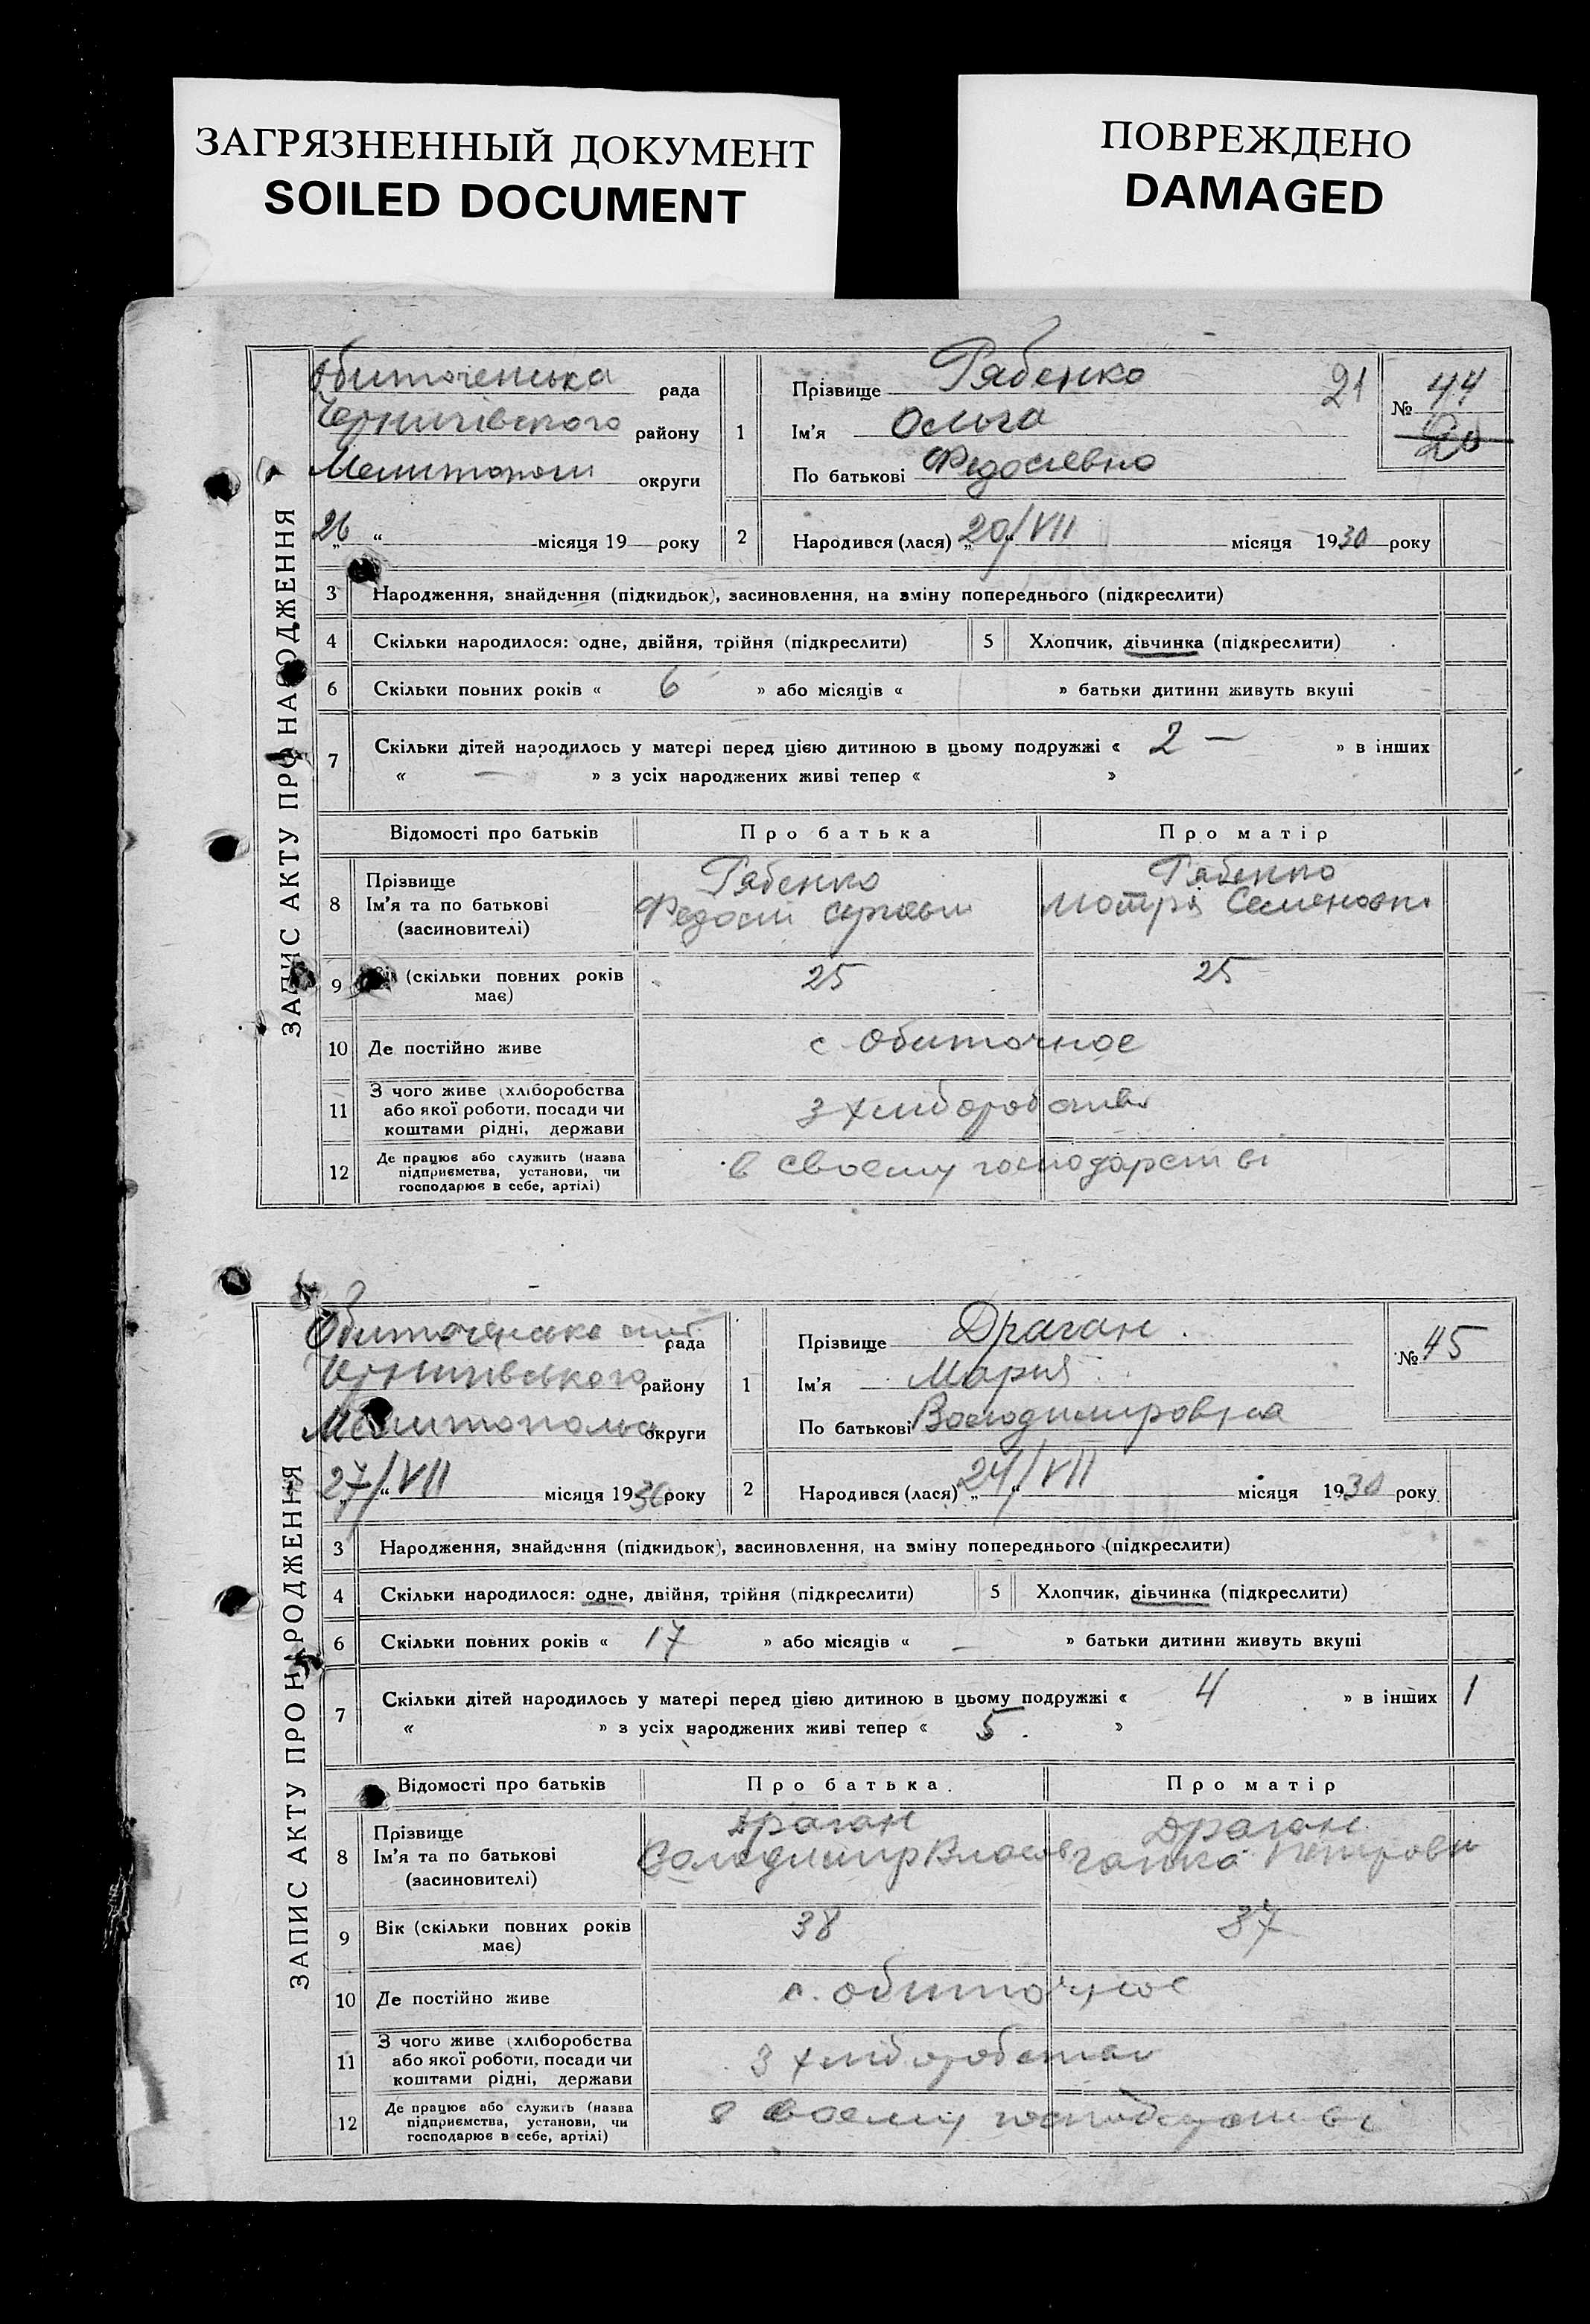 ЗАГРЯЗНЕННЫЙ ДОКУМЕНТ
SOILED DOCUMENT
ПОВРЕЖДЕНО
DAMAGED
ЗАПИС АКТУ ПРО НАРОДЖЕННЯ
Обиточенська рада
Чернигівського району
Мелитополь округи
„26“ місяця 19 року
1
Прізвище Рябенко
Ім'я Ольга
По батькові Федосіевна
21
№ 44
20
2 Народився (лася) „20/VII“ місяця 1930 року
3 Народження, знайдення (підкидьок), засиновлення, на зміну попереднього (підкреслити)
4 Скільки народилося: одне, двійня, трійня (підкреслити) 5 Хлопчик, дівчинка (підкреслити)
6 Скільки повних років « 6 » або місяців « » батьки дитини живуть вкупі
7 Скільки дітей народилось у матері перед цією дитиною в цьому подружжі « 2 — » в інших
« — » з усіх народжених живі тепер « »
Відомості про батьків Про батька Про матір
8 Прізвище Рябенко Рябенко
Ім'я та по батькові Федосій Мотря Семеновна
(засиновителі)
9 Вік (скільки повних років 25 25
має)
10 Де постійно живе с Обиточное
11 З чого живе (хліборобства
або якої роботи, посади чи з хліборобства
коштами рідні, держави
12 Де працює або служить (назва
підприємства, установи, чи в своему господарстві
господарює в себе, артілі)
ЗАПИС АКТУ ПРО НАРОДЖЕННЯ
Обиточенська рада
Чернигівського району
Мелитополь округи
„27/VII“ місяця 1930 року
1
Прізвище Драган
Ім'я Мария
По батькові Володимировна
№ 45
2 Народився (лася) „24/VII“ місяця 1930 року
3 Народження, знайдення (підкидьок), засиновлення, на зміну попереднього (підкреслити)
4 Скільки народилося: одне, двійня, трійня (підкреслити) 5 Хлопчик, дівчинка (підкреслити)
6 Скільки повних років « 17 » або місяців « — » батьки дитини живуть вкупі
7 Скільки дітей народилось у матері перед цією дитиною в цьому подружжі « 4 » в інших 1
« » з усіх народжених живі тепер « 5 »
Відомості про батьків Про батька Про матір
8 Прізвище Драган Драган
Ім'я та по батькові Володимир Власов Ганна Петровн
(засиновителі)
9 Вік (скільки повних років 38 37
має)
10 Де постійно живе с. Обиточное
11 З чого живе (хліборобства
або якої роботи, посади чи з хліборобства
коштами рідні, держави
12 Де працює або служить (назва
підприємства, установи, чи в своему господарстві
господарює в себе, артілі)